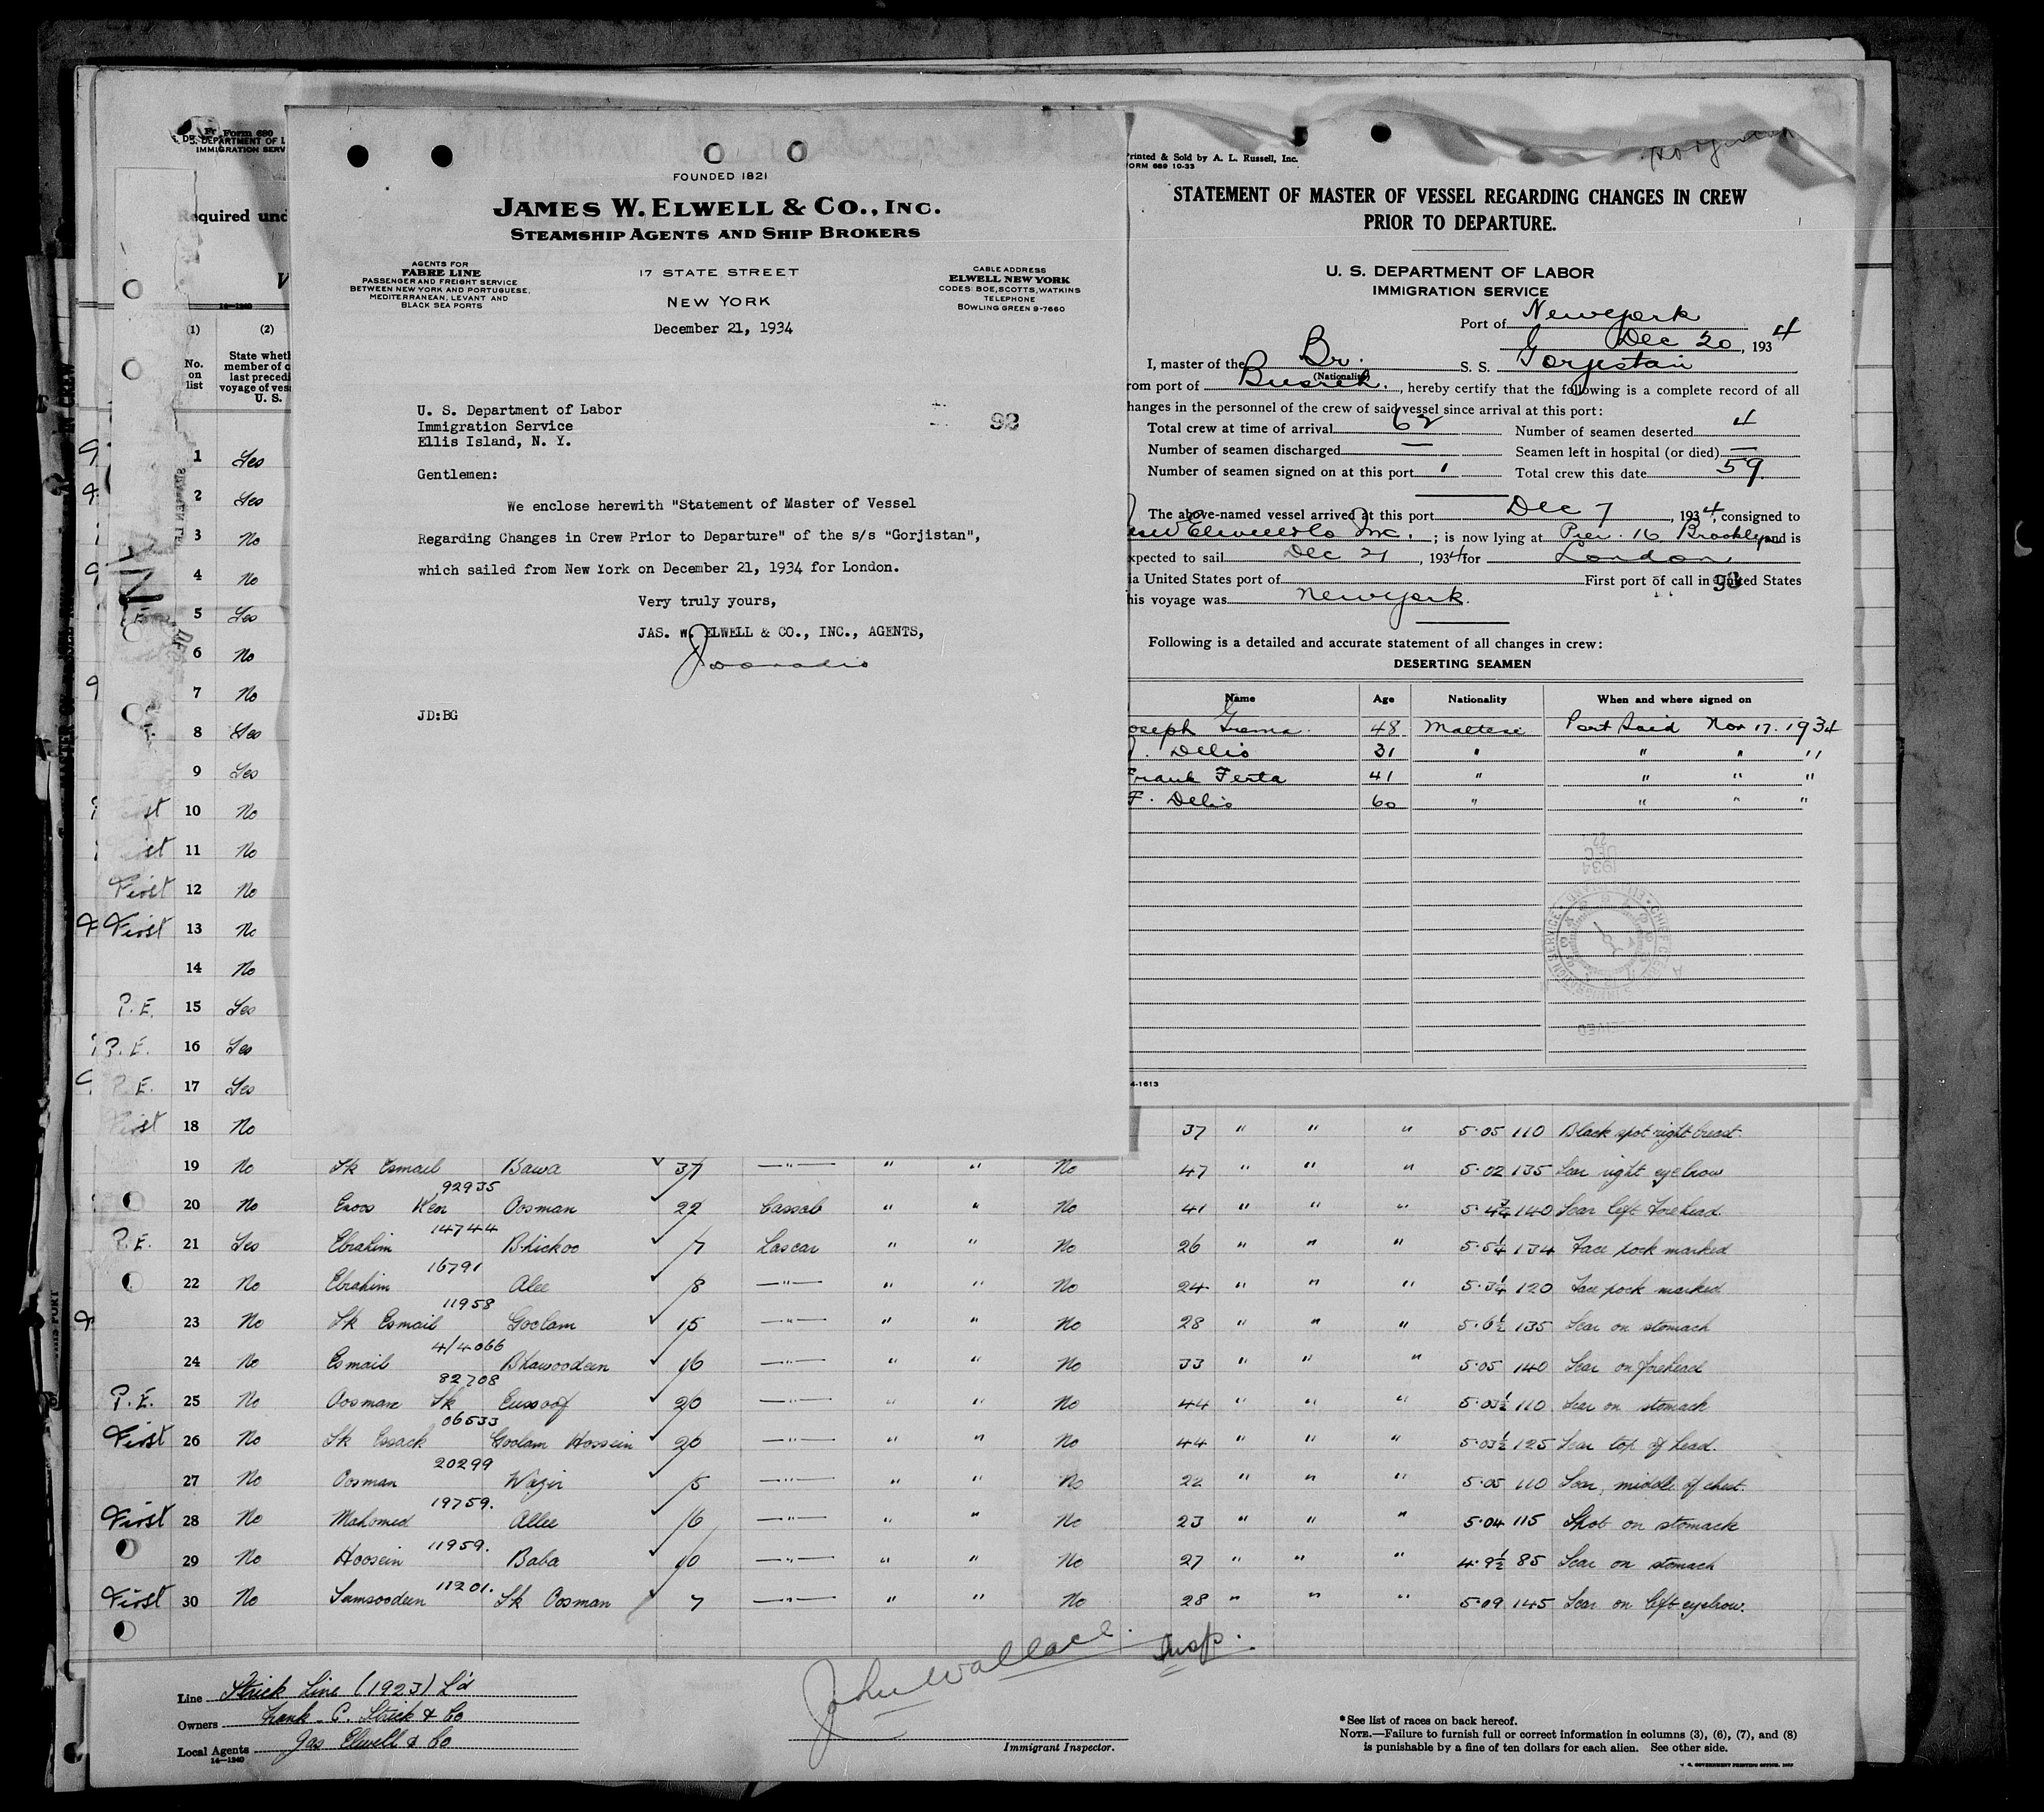 Form 680
DEPARTMENT OF L
IMMIGRATION SERV
Required und
14—1940
(1)
(2)
No.
on
list
State wheth
member of c
last precedi
voyage of ves
U. S.
FOUNDED 1821
JAMES W. ELWELL & CO., INC.
STEAMSHIP AGENTS AND SHIP BROKERS
AGENTS FOR
FABRE LINE
PASSENGER AND FREIGHT SERVICE
BETWEEN NEW YORK AND PORTUGUESE,
MEDITERRANEAN, LEVANT AND
BLACK SEA PORTS
17 STATE STREET
NEW YORK
CABLE ADDRESS
ELWELL NEW YORK
CODES: BOE, SCOTTS, WATKINS
TELEPHONE
BOWLING GREEN 9-7660
December 21, 1934
U. S. Department of Labor
Immigration Service
Ellis Island, N. Y.
92
Gentlemen:
We enclose herewith "Statement of Master of Vessel
Regarding Changes in Crew Prior to Departure" of the s/s "Gorjistan",
which sailed from New York on December 21, 1934 for London.
Very truly yours,
JAS. W. ELWELL & CO., INC., AGENTS,
JD:BG
Printed & Sold by A. L. Russell, Inc.
FORM 689 10-33
STATEMENT OF MASTER OF VESSEL REGARDING CHANGES IN CREW
PRIOR TO DEPARTURE.
U. S. DEPARTMENT OF LABOR
IMMIGRATION SERVICE
Port of New York
Dec 20, 1934
I, master of the Br. S. S. Gorjistan
(Nationality)
rom port of Busreh, hereby certify that the following is a complete record of all
hanges in the personnel of the crew of said vessel since arrival at this port:
Total crew at time of arrival 62 Number of seamen deserted 4
Number of seamen discharged — Seamen left in hospital (or died) —
Number of seamen signed on at this port 1 Total crew this date 59
The above-named vessel arrived at this port Dec 7, 1934, consigned to
Elwell & Co Inc.; is now lying at Pier 16 Brooklyn and is
xpected to sail Dec 21, 1934 for London
ia United States port of First port of call in United States
93
his voyage was New York.
Following is a detailed and accurate statement of all changes in crew:
DESERTING SEAMEN
Name Age Nationality When and where signed on
oseph Grema. 48 Maltese Port Said Nov 17. 1934
. Dellis 31 " " " "
Frank Ferta 41 " " " "
F. Delis 60 " " " "
4-1613
1 Yes
2 Yes
3 No
4 No
5 Yes
6 No
7 No
8 Yes
9 Yes
10 No
11 No
First 12 No
First 13 No
14 No
P.E. 15 Yes
P.E. 16 Yes
P.E. 17 Yes
First 18 No 37 " " " 5.05 110 Black spot right breast.
19 No Sk Esmail Bawa 37 —"— " " No 47 " " " 5.02 135 Scar right eyebrow
92935
20 No Ken Oosman 22 Cassab " " No 41 " " " 140 Scar left forehead.
14744
P.E. 21 Yes Ebrahim Bhickoo 7 Lascar " " No 26 " " " 5.5¼ 134 Face pock marked
16791
22 No Ebrahim Alee 8 —"— " " No 24 " " " 5.3¼ 120 Face pock marked
11958
23 No Sk Esmail Goolam 15 —"— " " No 28 " " " 5.6½ 135 Scar on stomach
4/4066
24 No Esmail Bhawoodeen 16 —"— " " No 33 " " " 5.05 140 Scar on forehead
82708
P.E. 25 No Oosman Sk Eussoof 20 —"— " " No 44 " " " 5.03½ 110 Scar on stomach
06533
First 26 No Sk Essack Goolam Hossein 20 —"— " " No 44 " " " 5.03½ 125 Scar top of head.
20299
27 No Oosman Wazir 5 —"— " " No 22 " " " 5.05 110 Scar, middle of chest.
19759.
First 28 No Mahomed Allee 16 —"— " " No 23 " " " 5.04 115 Spot on stomach
11959.
29 No Hoosein Baba 10 —"— " " No 27 " " " 4.9½ 85 Scar on stomach
11201.
First 30 No Samsoodeen Sk Oosman 7 —"— " " No 28 " " " 5.09 145 Scar on left eyebrow.
John Wallace. Insp.
Immigrant Inspector.
Line Strick Line (1923) Ld
Owners Frank C. Strick & Co
Local Agents Jas Elwell & Co
14—1940
*See list of races on back hereof.
NOTE.—Failure to furnish full or correct information in columns (3), (6), (7), and (8)
is punishable by a fine of ten dollars for each alien. See other side.
U. S. GOVERNMENT PRINTING OFFICE